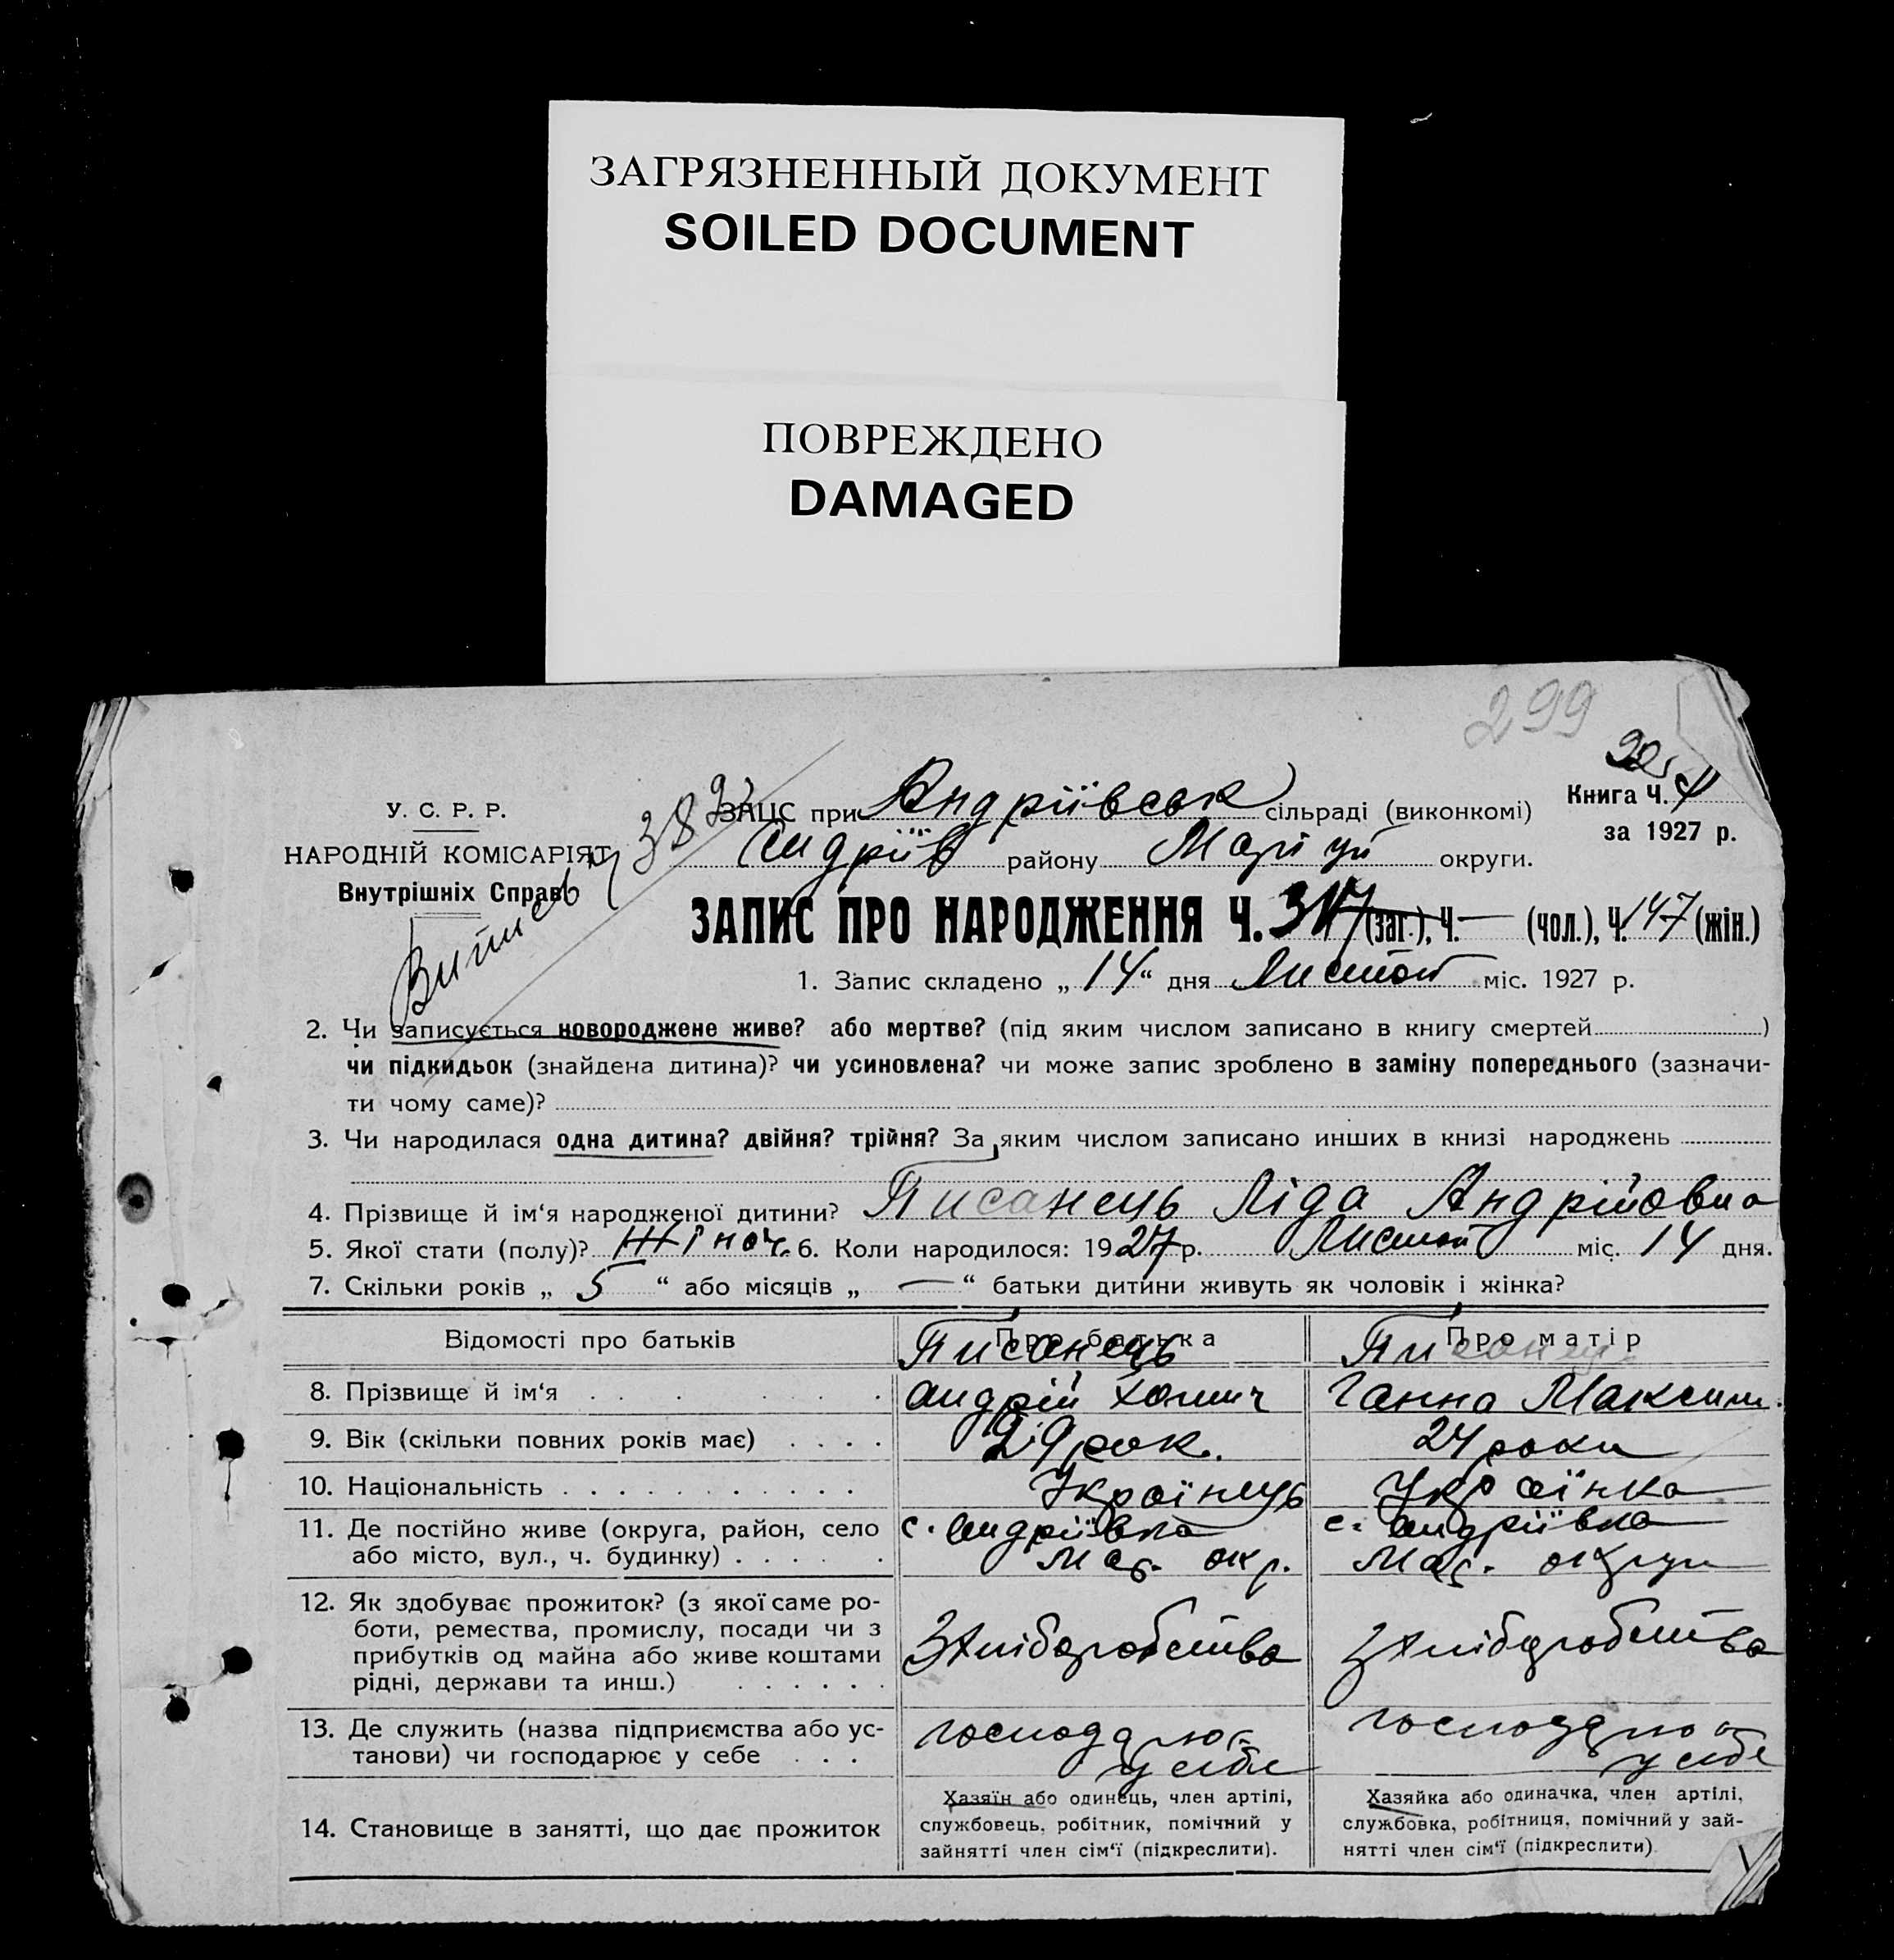 ЗАГРЯЗНЕННЫЙ ДОКУМЕНТ
SOILED DOCUMENT
ПОВРЕЖДЕНО
DAMAGED
299
Книга Ч. 4
за 1927 р.
У. С. Р. Р.
НАРОДНІЙ КОМІСАРІЯТ
Внутрішніх Справ
ЗАЦС при Андріївськ сільраді (виконкомі)
Андріїв району Маріуп округи.
ЗАПИС ПРО НАРОДЖЕННЯ Ч. (заг.), Ч. — (чол.), Ч. 147 (жін.)
1. Запис складено „ 14 “ дня Листоп міс. 1927 р.
2. Чи записується новороджене живе? або мертве? (під яким числом записано в книгу смертей )
чи підкидьок (знайдена дитина)? чи усиновлена? чи може запис зроблено в заміну попереднього (зазначи-
ти чому саме)?
3. Чи народилася одна дитина? двійня? трійня? За яким числом записано инших в книзі народжень
4. Прізвище й ім‘я народженої дитини? Писанець Ліда Андрійовна
5. Якої стати (полу)? Жіноч. 6. Коли народилося: 1927 р. Листоп міс. 14 дня.
7. Скільки років „ 5 “ або місяців „ — “ батьки дитини живуть як чоловік і жінка?
Відомості про батьків Про батька Про матір
Писанець Писанец
8. Прізвище й ім‘я Андрій Хомич Ганна Максим.
9. Вік (скільки повних років має) 29 рок. 24 роки
10. Національність Українець Українка
11. Де постійно живе (округа, район, село с. Андріївка с. Андріївка
або місто, вул., ч. будинку) Мар. окр. Мар. округи
12. Як здобуває прожиток? (з якої саме ро-
боти, ремества, промислу, посади чи з
прибутків од майна або живе коштами З хліборобства З хліборобства
рідні, держави та инш.)
13. Де служить (назва підприємства або ус- господарює господарює
танови) чи господарює у себе у себе у себе
14. Становище в занятті, що дає прожиток
Хазяїн або одинець, член артілі,
службовець, робітник, помічний у
зайнятті член сім‘ї (підкреслити).
Хазяйка або одиначка, член артілі,
службовка, робітниця, помічний у зай-
нятті член сім‘ї (підкреслити)